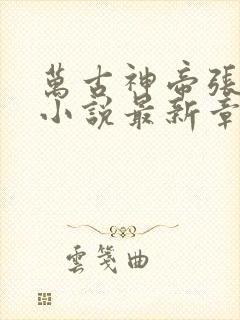 萬古神帝張
小說最新章
雲箋曲